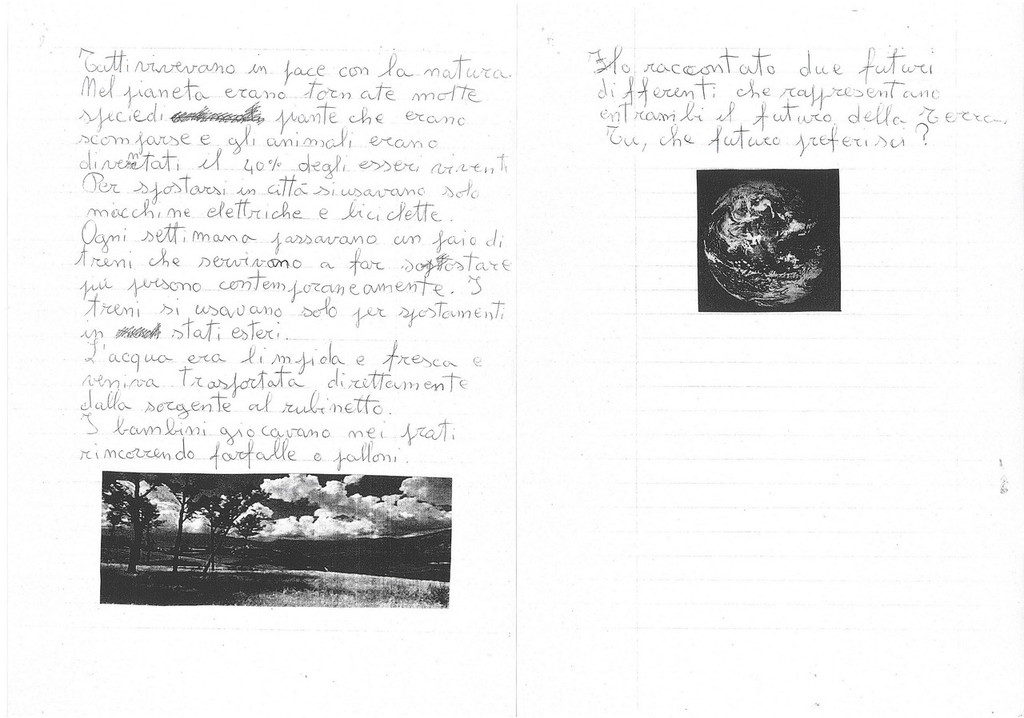 Tutti vivevano in pace con la natura.
Nel pianeta erano tornate molte
specie di piante che erano
scomparse e gli animali erano
diventati il 40% degli esseri viventi
Per spostarsi in città si usavano solo
macchine elettriche e biciclette.
Ogni settimana passavano un paio di
treni che servivano a far spostare
più persone contemporaneamente. I
treni si usavano solo per spostamenti
in stati esteri.
L'acqua era limpida e fresca e
veniva trasportata direttamente
dalla sorgente al rubinetto.
I bambini giocavano nei prati
rincorrendo farfalle o palloni.
Ho raccontato due futuri
differenti che rappresentano
entrambi il futuro della Terra.
Tu, che futuro preferisci?